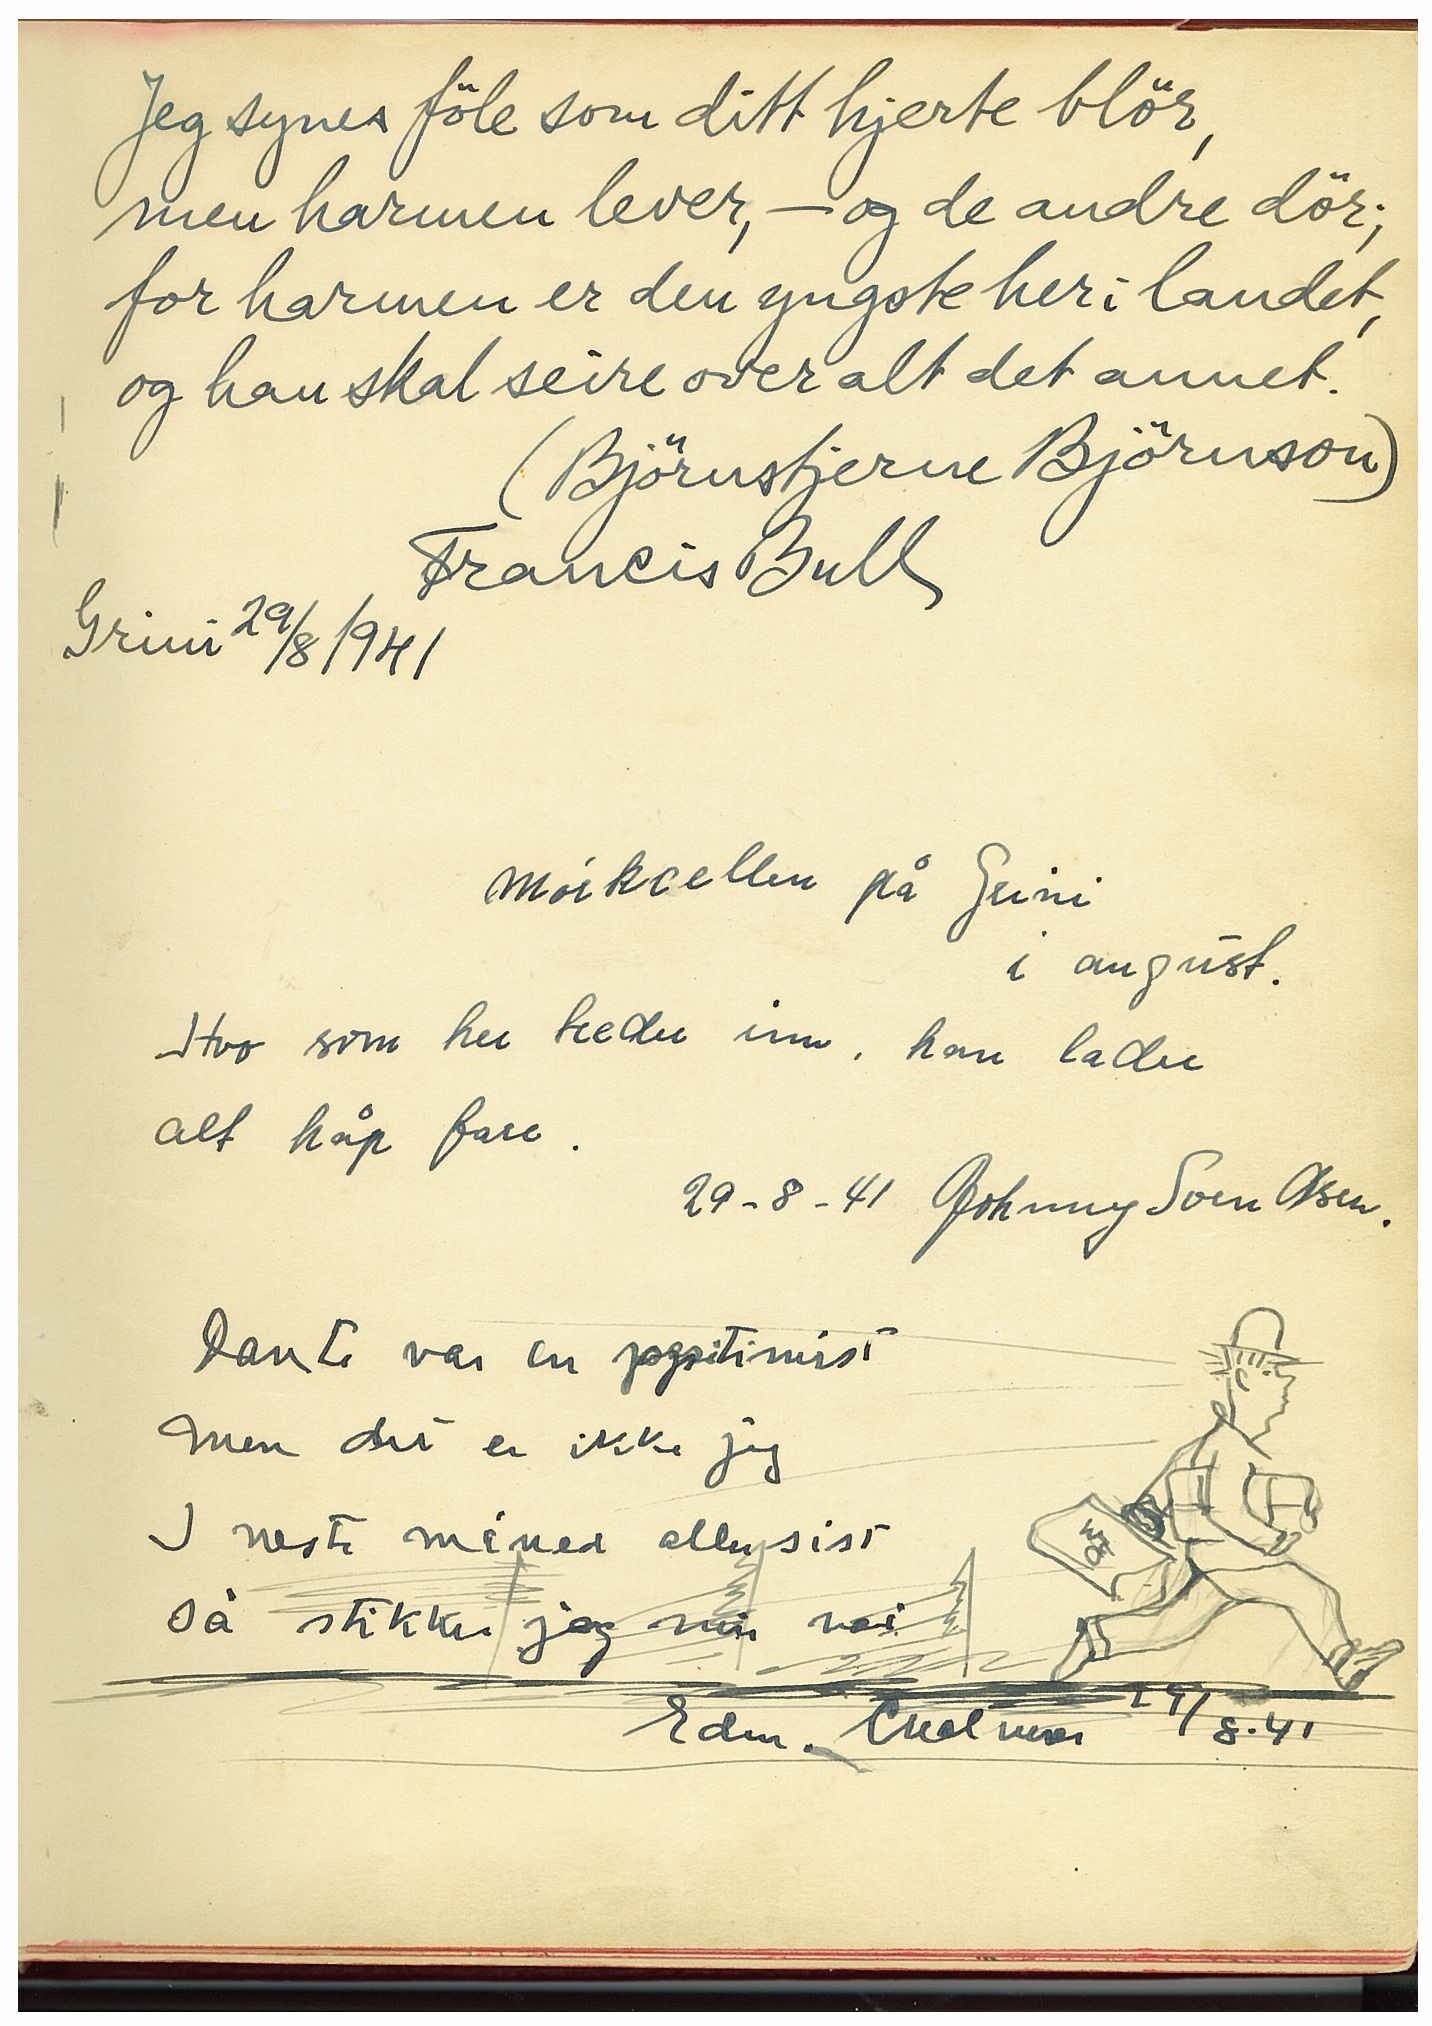 Jeg synes föle som ditt hjerte blör,
men harmen lever, — og de andre dör;
for harmen er den yngste her i landet,
og han skal seire over alt det annet.
(Björnstjerne Björnson)
Francis Bull
Grini 29/8 1941
Mörkcellen på Grini
i august.
Hvo som her treder inn, han lader
alt håp fare.
29-8-41 Johnny Sven Olsen.
Dante var en
Men det er ikke jeg
I neste måned aller sist
så stikker jeg min vei
Edm. 29/8.41